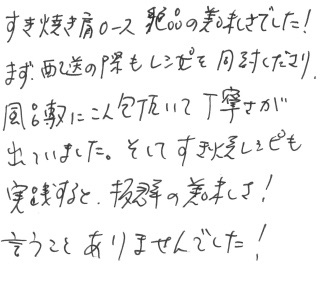 すき焼き肩ロース 絶品の美味しさでした!
まず、配送の際もレシピを同封くださり、
風呂敷にくるんで頂いて丁寧さが
出ていました。そしてすき焼レシピも
実践すると、抜群の美味しさ!
言うことありませんでした!